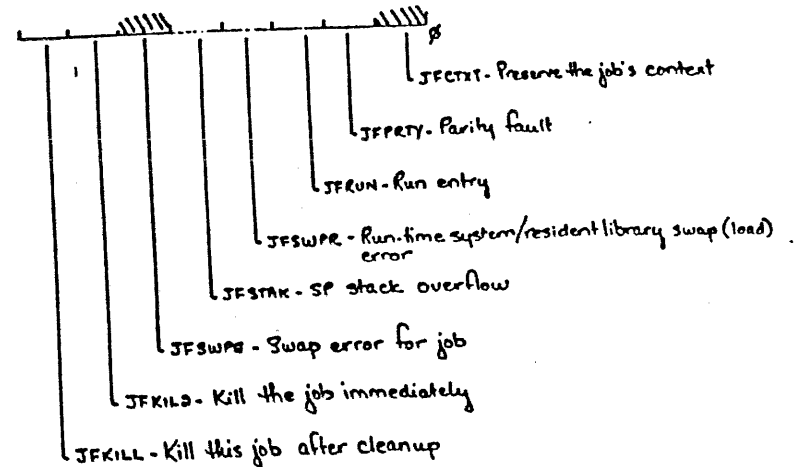 Ø
JFCTXT - Preserve the job's context
JFPRTY - Parity fault
JFRUN - Run entry
JFSWPR - Run-time system/resident library swap (load)
error
JFSTAK - SP stack overflow
Swap error for job
Kill the job immediately
JFKILL - Kill this job after cleanup